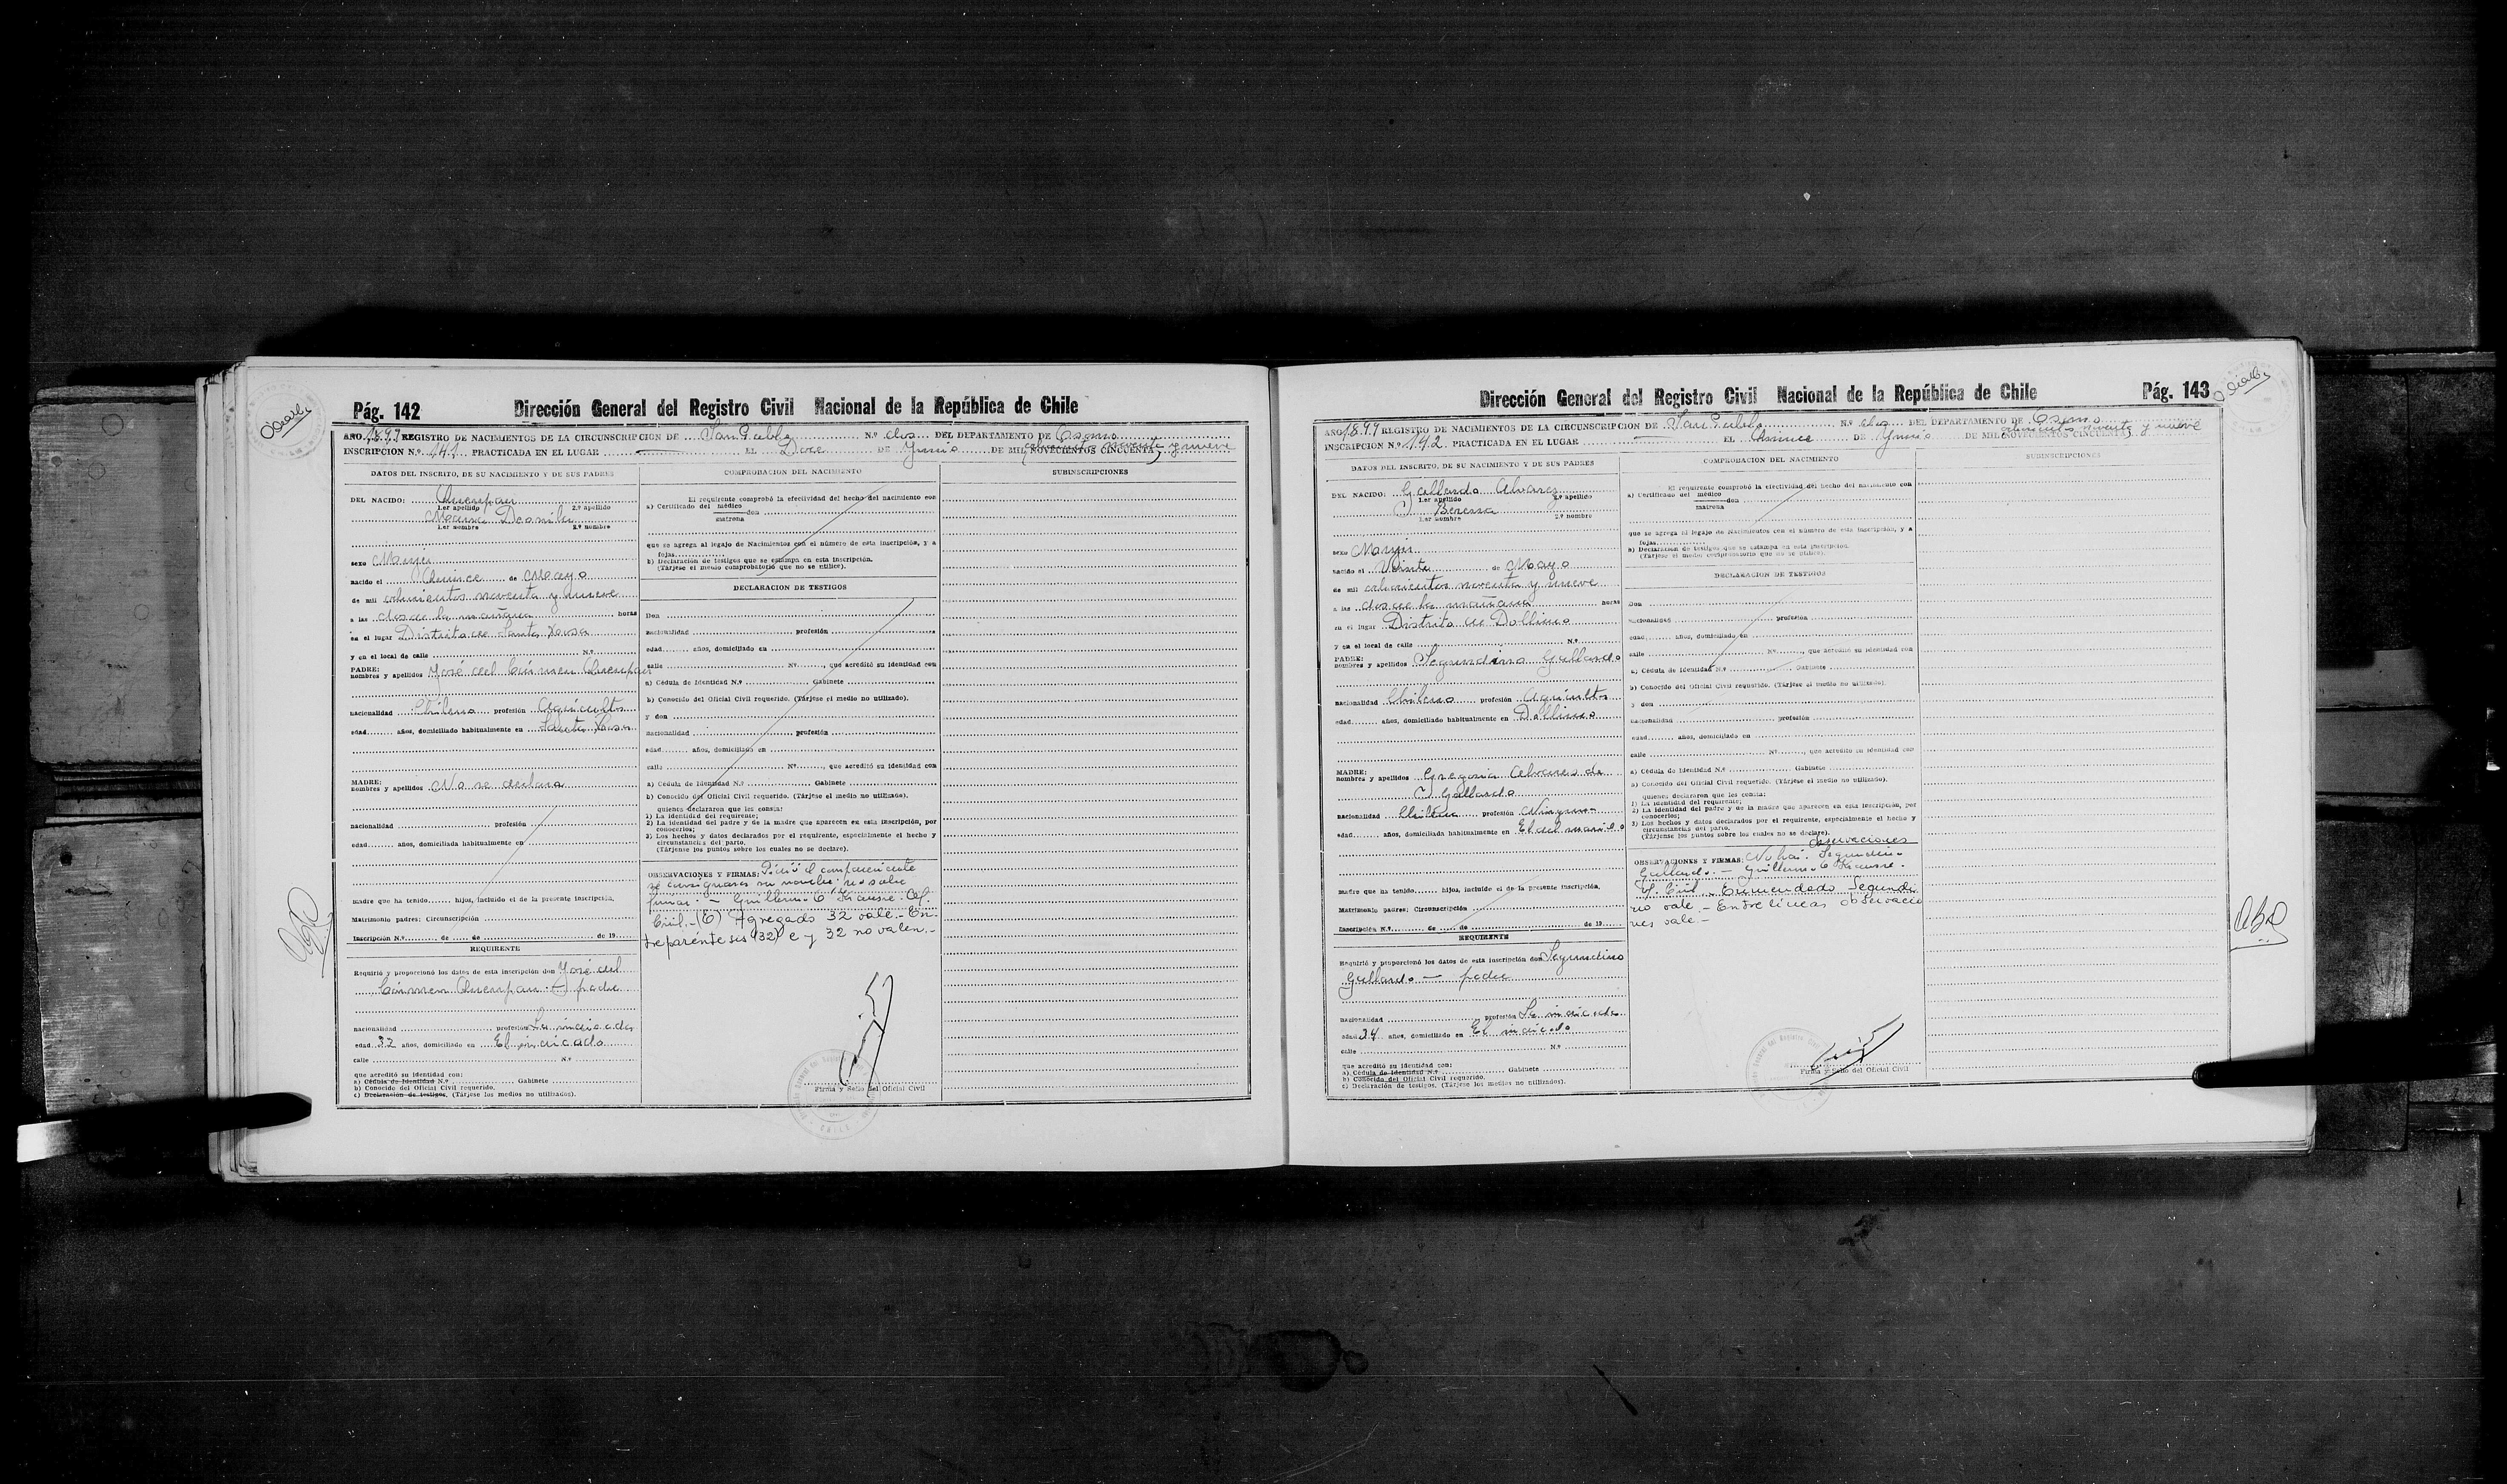 Pág. 142 Dirección General del Registro Civil Nacional de la República de Chile
AÑO 1899 REGISTRO DE NACIMIENTOS DE LA CIRCUNSCRIPCION DE San Pablo N.º dos DEL DEPARTAMENTO DE Osorno
INSCRIPCION N.º 141 PRACTICADA EN EL LUGAR EL Doce DE Junio DE MIL (NOVECIENTOS CINCUENTA) ochocientos noventa y nueve
DATOS DEL INSCRITO, DE SU NACIMIENTO Y DE SUS PADRES
DEL NACIDO: Queupan
1.er apellido 2.º apellido
María Deomila
1.er nombre 2.º nombre
sexo Mujer
nacido el Quince de Mayo
de mil ochocientos noventa y nueve
a las dos de la mañana horas
en el lugar Distrito de Santa Rosa
y en el local de calle N.º
PADRE:
nombres y apellidos José del Cármen Queupan
nacionalidad Chileno profesión Agricultor
edad años, domiciliado habitualmente en Santa Rosa
MADRE:
nombres y apellidos No se declara
nacionalidad profesión
edad años, domiciliada habitualmente en
madre que ha tenido hijos, incluido el de la presente inscripción.
Matrimonio padres: Circunscripción
Inscripción N.º de de de 19
REQUIRENTE
Requirió y proporcionó los datos de esta inscripción don José del
Cármen Queupan - padre
nacionalidad profesión La indicada
edad 32 años, domiciliado en El indicado
calle N.º
que acreditó su identidad con:
a) Cédula de Identidad N.º Gabinete
b) Conocido del Oficial Civil requerido.
c) Declaración de testigos. (Tárjese los medios no utilizados).
COMPROBACION DEL NACIMIENTO
El requirente comprobó la efectividad del hecho del nacimiento con
a) Certificado del médico
don
matrona
que se agrega al legajo de Nacimientos con el número de esta inscripción, y a
fojas
b) Declaración de testigos que se estampa en esta inscripción.
(Tárjese el medio comprobatorio que no se utilice).
DECLARACION DE TESTIGOS
Don
nacionalidad profesión
edad años, domiciliado en
calle N.º, que acreditó su identidad con
a) Cédula de Identidad N.º Gabinete
b) Conocido del Oficial Civil requerido. (Tárjese el medio no utilizado).
y don
nacionalidad profesión
edad años, domiciliado en
calle N.º, que acreditó su identidad con
a) Cédula de Identidad N.º Gabinete
b) Conocido del Oficial Civil requerido. (Tárjese el medio no utilizado).
quienes declararon que les consta:
1) La identidad del requirente;
2) La identidad del padre y de la madre que aparecen en esta inscripción, por
conocerlos;
3) Los hechos y datos declarados por el requirente, especialmente el hecho y
circunstancias del parto.
(Tárjense los puntos sobre los cuales no se declare).
OBSERVACIONES Y FIRMAS: Pidió el compareciente
se consignara su nombre: no sabe
firmar. - Guillermo E. Krausse. Of.
Civil. - (E) Agregado 32 vale. - En-
treparéntesis (32) e y 32 no valen. -
Firma y Sello del Oficial Civil
SUBINSCRIPCIONES
Dirección General del Registro Civil Nacional de la República de Chile Pág. 143
AÑO 1899 REGISTRO DE NACIMIENTOS DE LA CIRCUNSCRIPCION DE San Pablo N.º dos DEL DEPARTAMENTO DE Osorno
INSCRIPCION N.º 142 PRACTICADA EN EL LUGAR EL Quince DE Junio DE MIL (NOVECIENTOS CINCUENTA) ochocientos noventa y nueve
DATOS DEL INSCRITO, DE SU NACIMIENTO Y DE SUS PADRES
DEL NACIDO: Gallardo Alvarez
1.er apellido 2.º apellido
1.er nombre 2.º nombre
sexo Mujer
nacido el Veinte de Mayo
de mil ochocientos noventa y nueve
a las dos de la mañana horas
en el lugar Distrito de Dollinco
y en el local de calle N.º
PADRE:
nombres y apellidos Segundino Gallardo
nacionalidad Chileno profesión Agricultor
edad años, domiciliado habitualmente en Dollinco
MADRE:
nombres y apellidos Gregoria Alvarez de
Gallardo
nacionalidad Chilena profesión Ninguna
edad años, domiciliada habitualmente en El del marido
madre que ha tenido hijos, incluido el de la presente inscripción.
Matrimonio padres: Circunscripción
Inscripción N.º de de de 19
REQUIRENTE
Requirió y proporcionó los datos de esta inscripción don Segundino
Gallardo - padre
nacionalidad profesión La indicada
edad 34 años, domiciliado en El indicado
calle N.º
que acreditó su identidad con:
a) Cédula de Identidad N.º Gabinete
b) Conocido del Oficial Civil requerido.
c) Declaración de testigos. (Tárjese los medios no utilizados).
COMPROBACION DEL NACIMIENTO
El requirente comprobó la efectividad del hecho del nacimiento con
a) Certificado del médico
don
matrona
que se agrega al legajo de Nacimientos con el número de esta inscripción, y a
fojas
b) Declaración de testigos que se estampa en esta inscripción.
(Tárjese el medio comprobatorio que no se utilice).
DECLARACION DE TESTIGOS
Don
nacionalidad profesión
edad años, domiciliado en
calle N.º, que acreditó su identidad con
a) Cédula de Identidad N.º Gabinete
b) Conocido del Oficial Civil requerido. (Tárjese el medio no utilizado).
y don
nacionalidad profesión
edad años, domiciliado en
calle N.º, que acreditó su identidad con
a) Cédula de Identidad N.º Gabinete
b) Conocido del Oficial Civil requerido. (Tárjese el medio no utilizado).
quienes declararon que les consta:
1) La identidad del requirente;
2) La identidad del padre y de la madre que aparecen en esta inscripción, por
conocerlos;
3) Los hechos y datos declarados por el requirente, especialmente el hecho y
circunstancias del parto.
(Tárjense los puntos sobre los cuales no se declare).
observaciones
OBSERVACIONES Y FIRMAS: No hai. Segundino
Gallardo. - Guillermo E Krausse.
Of. Civil. - Enmendado Segundi
no vale. - Entre líneas observacio
nes vale. -
Firma y Sello del Oficial Civil
SUBINSCRIPCIONES